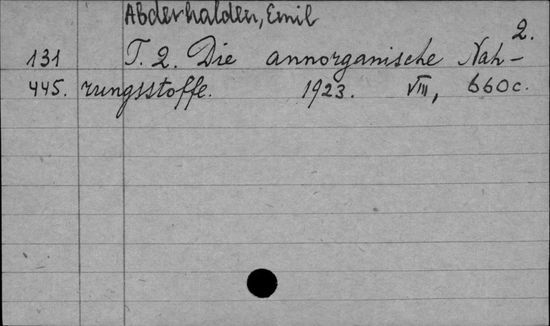 Abderhalden, Emil
2.
131 T. 2. Die annorganische Nah-
445. rungsstoffe. 1923. VIII, 660 c.